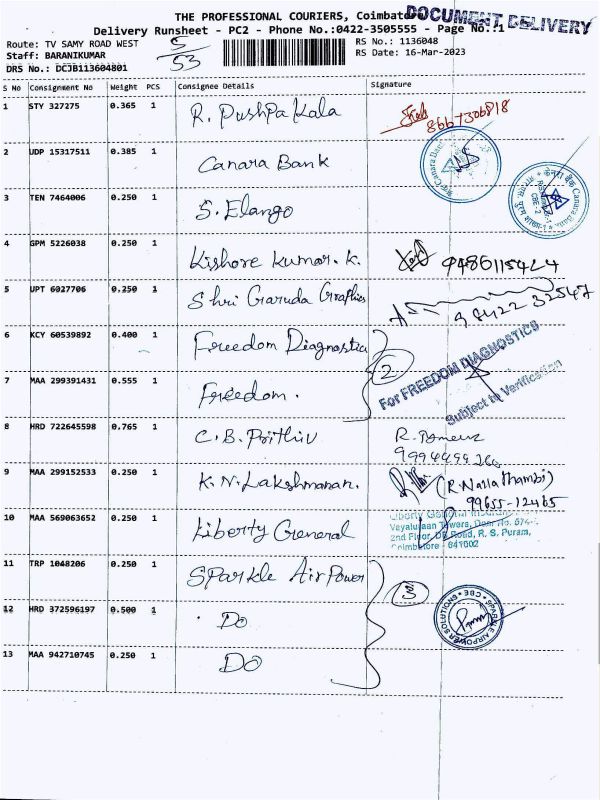 THE PROFESSIONAL COURIERS, Coimbatore
DOCUMENT DELIVERY
Delivery Runsheet - PC2 - Phone No.:0422-3505555 - Page No.:1
Route: TV SAMY ROAD WEST
5/53
RS No.: 1136048
Staff: BARANIKUMAR
RS Date: 16-Mar-2023
DRS No.: DCJB113604801
S No Consignment No Weight PCS Consignee Details Signature
1 STY 327275 0.365 1 R. Pushpa Kala 8667306818
2 UDP 15317511 0.385 1 Canara Bank
Canara Bank
3 TEN 7464006 0.250 1 S. Elango
4 GPM 5226038 0.250 1 Kishore Kumar. K. 9486115424
5 UPT 6027706 0.250 1 Shri Garuda Graphics 98422 32547
6 KCY 60539892 0.400 1 Freedom Diagnostic
2
For FREEDOM DIAGNOSTICS
Subject to Verification
7 MAA 299391431 0.555 1 Freedom.
8 HRD 722645598 0.765 1 C. B. Prithiv
9 MAA 299152533 0.250 1 K. N. Lakshmanan. (R. Nallathambi)
99655-12465
10 MAA 569063652 0.250 1 Liberty General
Liberty General
Towers, Door No.
2nd Floor, DB Road, R. S. Puram,
Coimbatore - 641002
11 TRP 1048206 0.250 1 Sparkle Air Power
3
SPARKLE AIRPOWER SOLUTIONS * CBE *
12 HRD 372596197 0.500 1 Do
13 MAA 942710745 0.250 1 DO